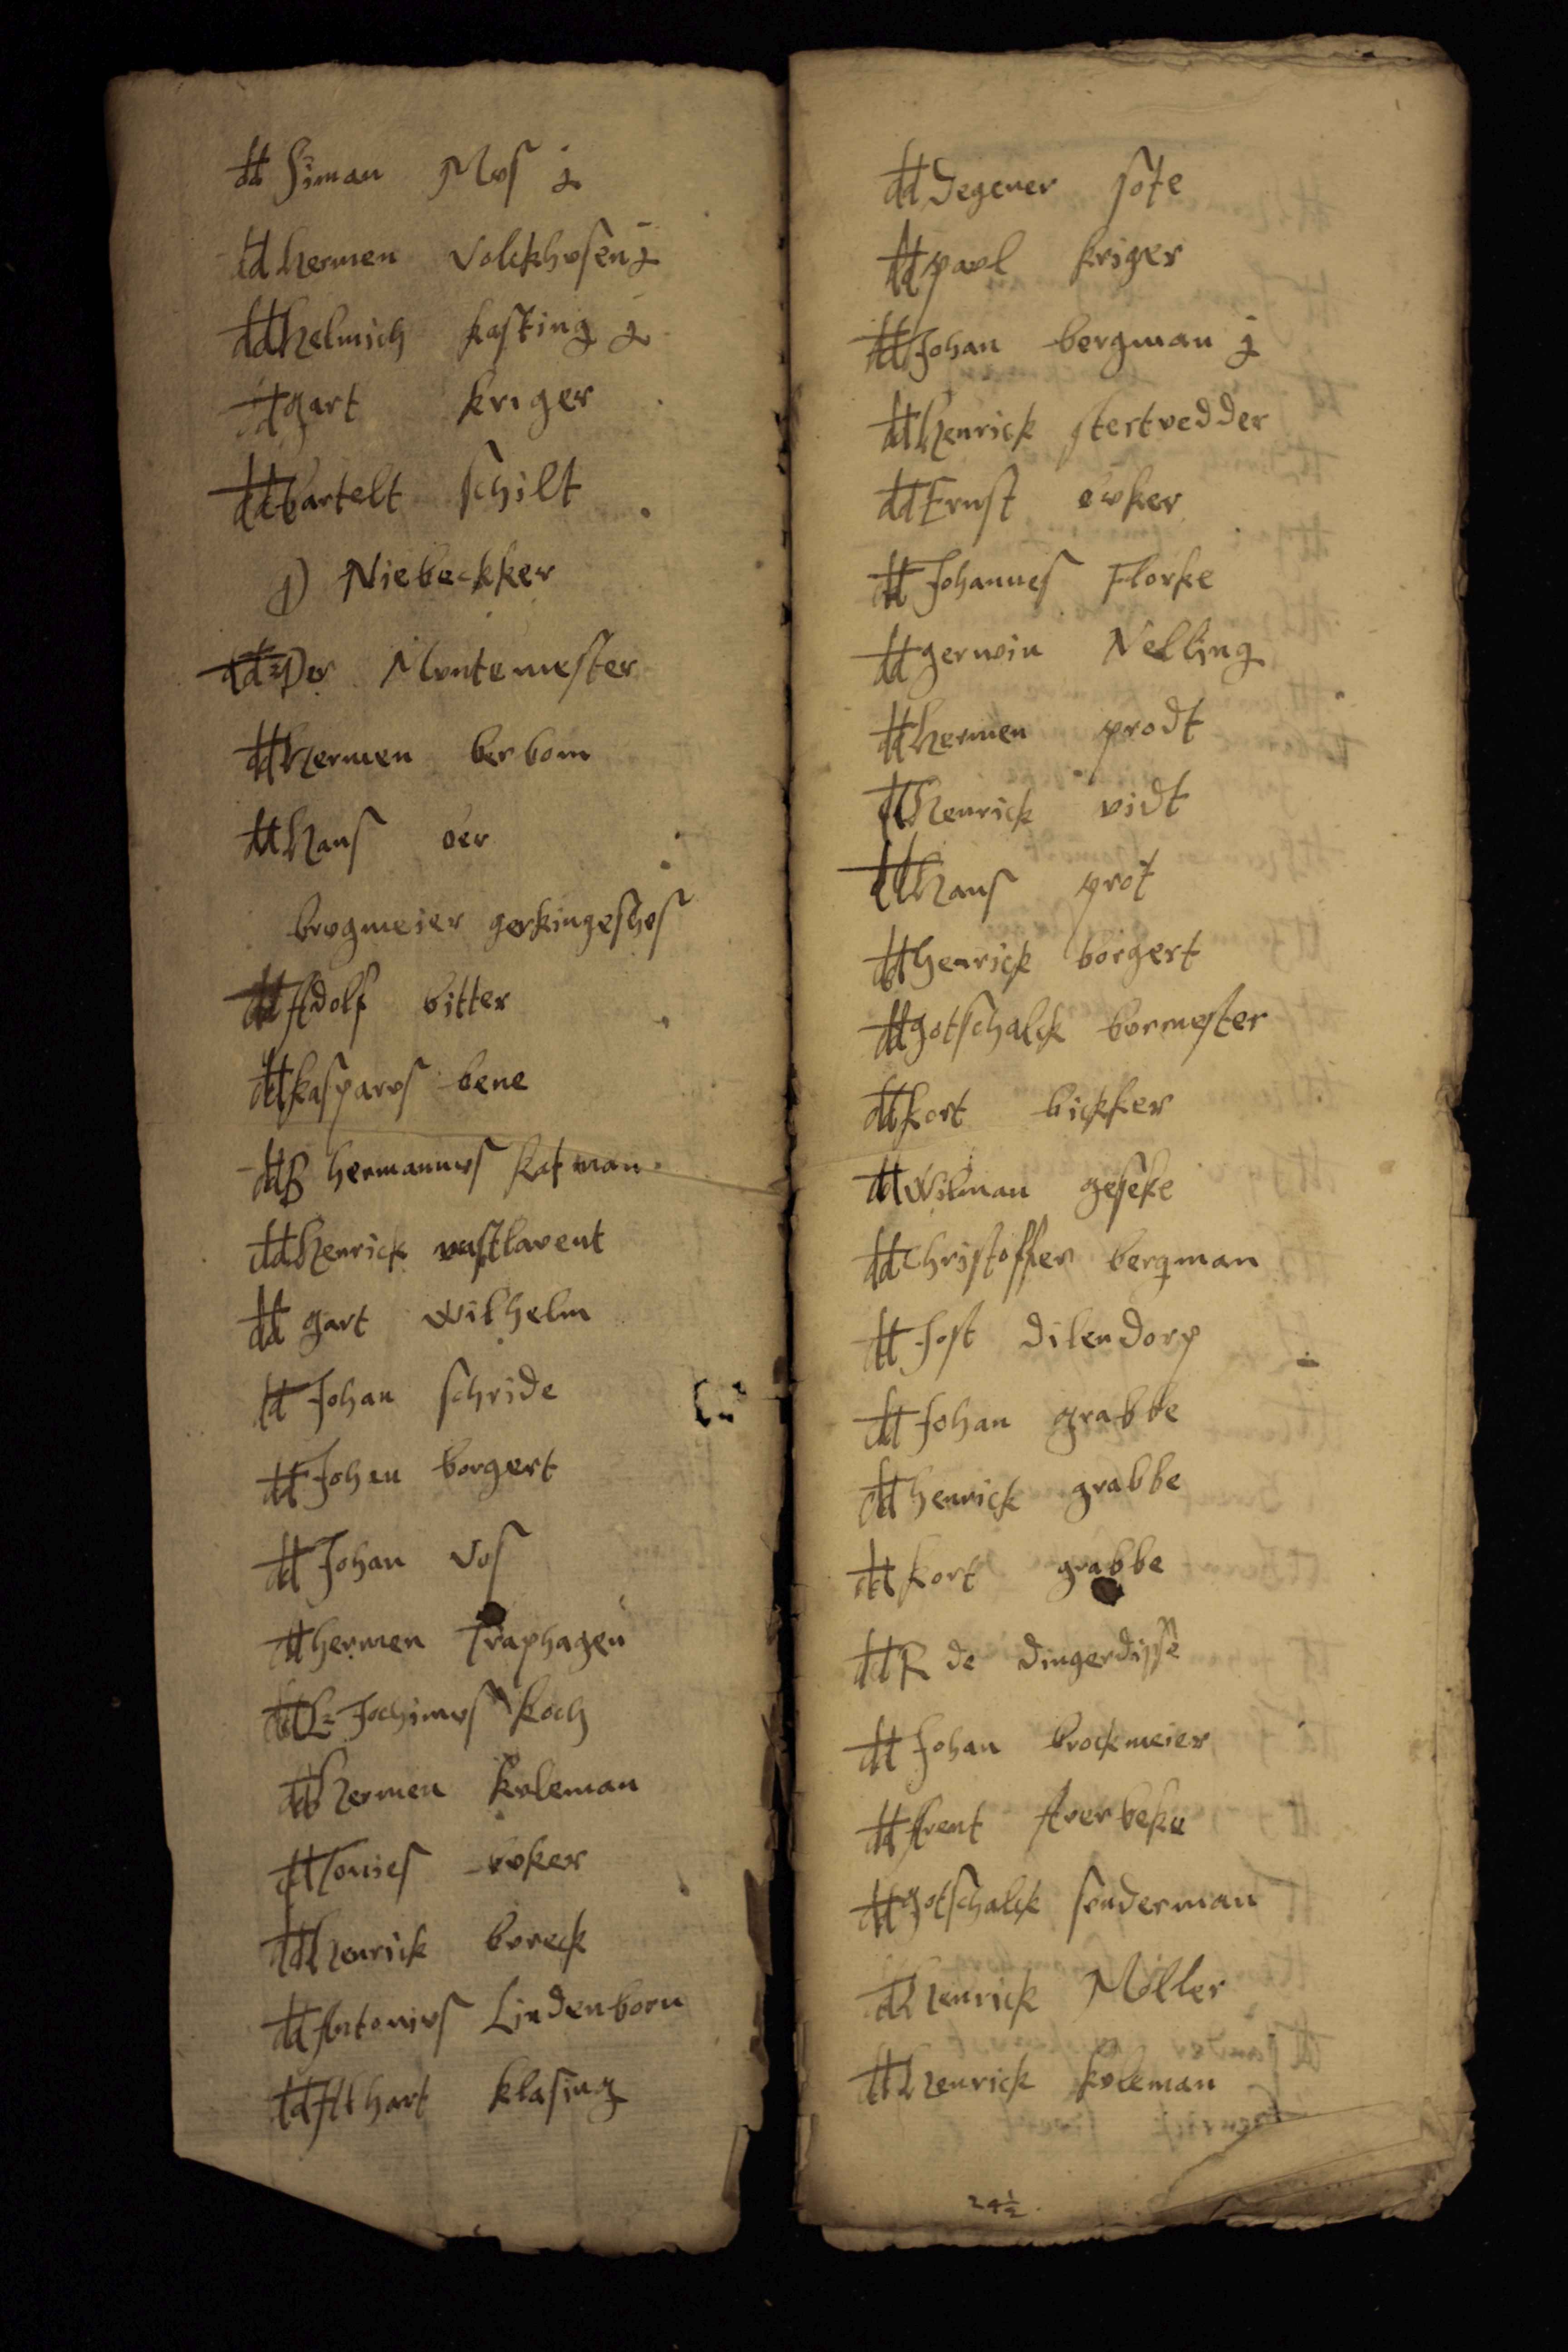 Siman Mvs j
hermen Volckhvsen j
helmich kasting j
gart kriger
bartelt schilt
j) Niebeckker
Der Mvntemester
hermen berbom
Hans öer
brvgmeier gerkingeshvs
Adolf bitter
kasparvs bene
B hermannvs katman
Henrick vastlavent
gart Wilhelm
Johan schride
Johan borgert
Johan Vos
hermen Traphagen
L: Jochimvs Koch
hermen kvleman
Tonies övker
Henrick bvreck
Antonivs Lindenborn
Alhart klasing
Degener söte
pavl kriger
Johan bergman j
Henrick stertvedder
Ernst övker
Johannes Florke
gerwin Nelling
hermen prodt
Henrick vidt
Hans prot
Henrick borgert
gotschalck bvrmester
kort bickker
Wilman geseke
Christoffer bergman
Jost Dilendorp
Johan grabbe
henrick grabbe
kort grabbe
R de Dingerdisse
Johan brockmeier
Arent Averbeke
gotschalck svnderman
Henrick Möller
Henrick kvleman
24½